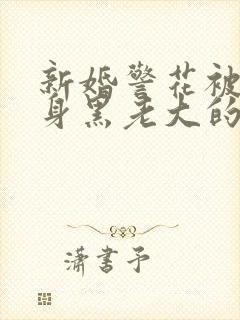 新婚警花被
身黑老大的
潇书予